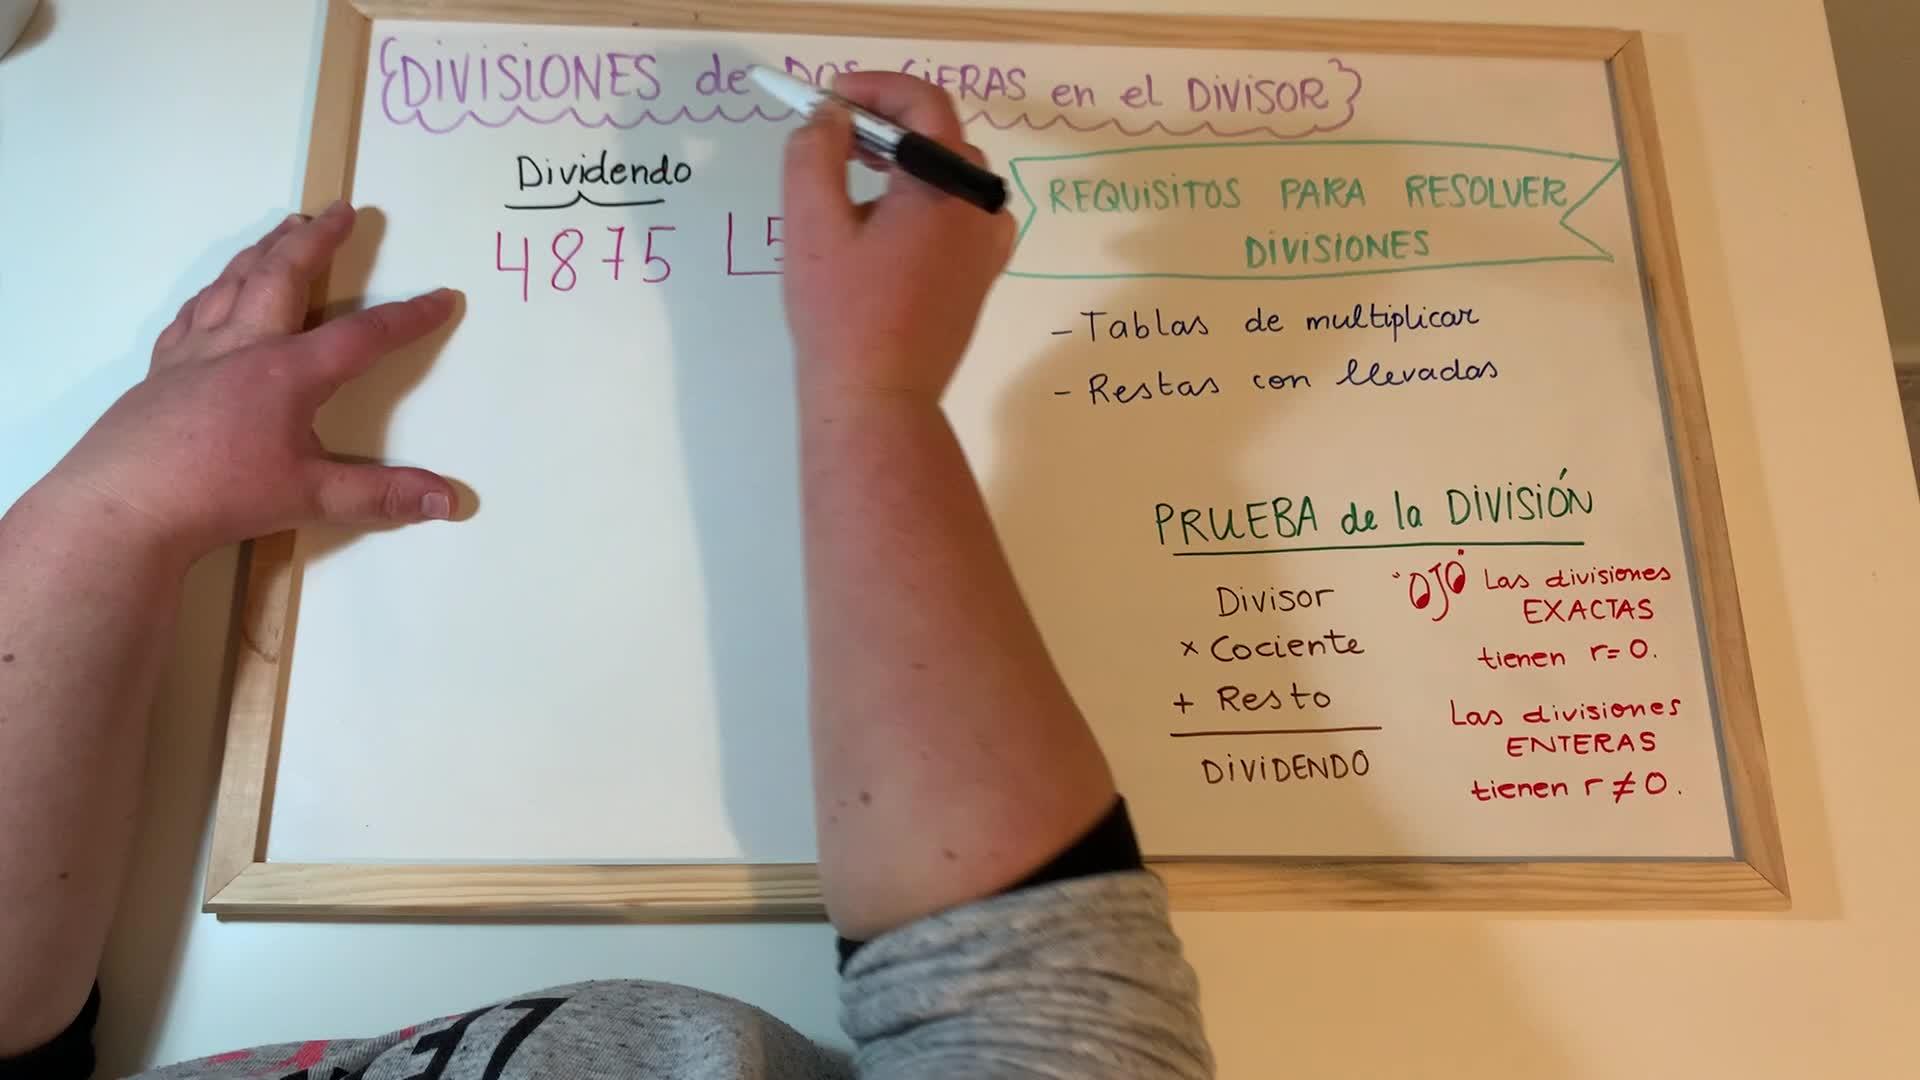 {DIVISIONES de DOS CIFRAS en el DIVISOR}
Dividendo
4875 5
REQUISITOS PARA RESOLVER
DIVISIONES
- Tablas de multiplicar
- Restas con llevadas
PRUEBA de la DIVISIÓN
Divisor
x Cociente
+ Resto
DIVIDENDO
"OJO" Las divisiones
EXACTAS
tienen r=0.
Las divisiones
ENTERAS
tienen r≠0.